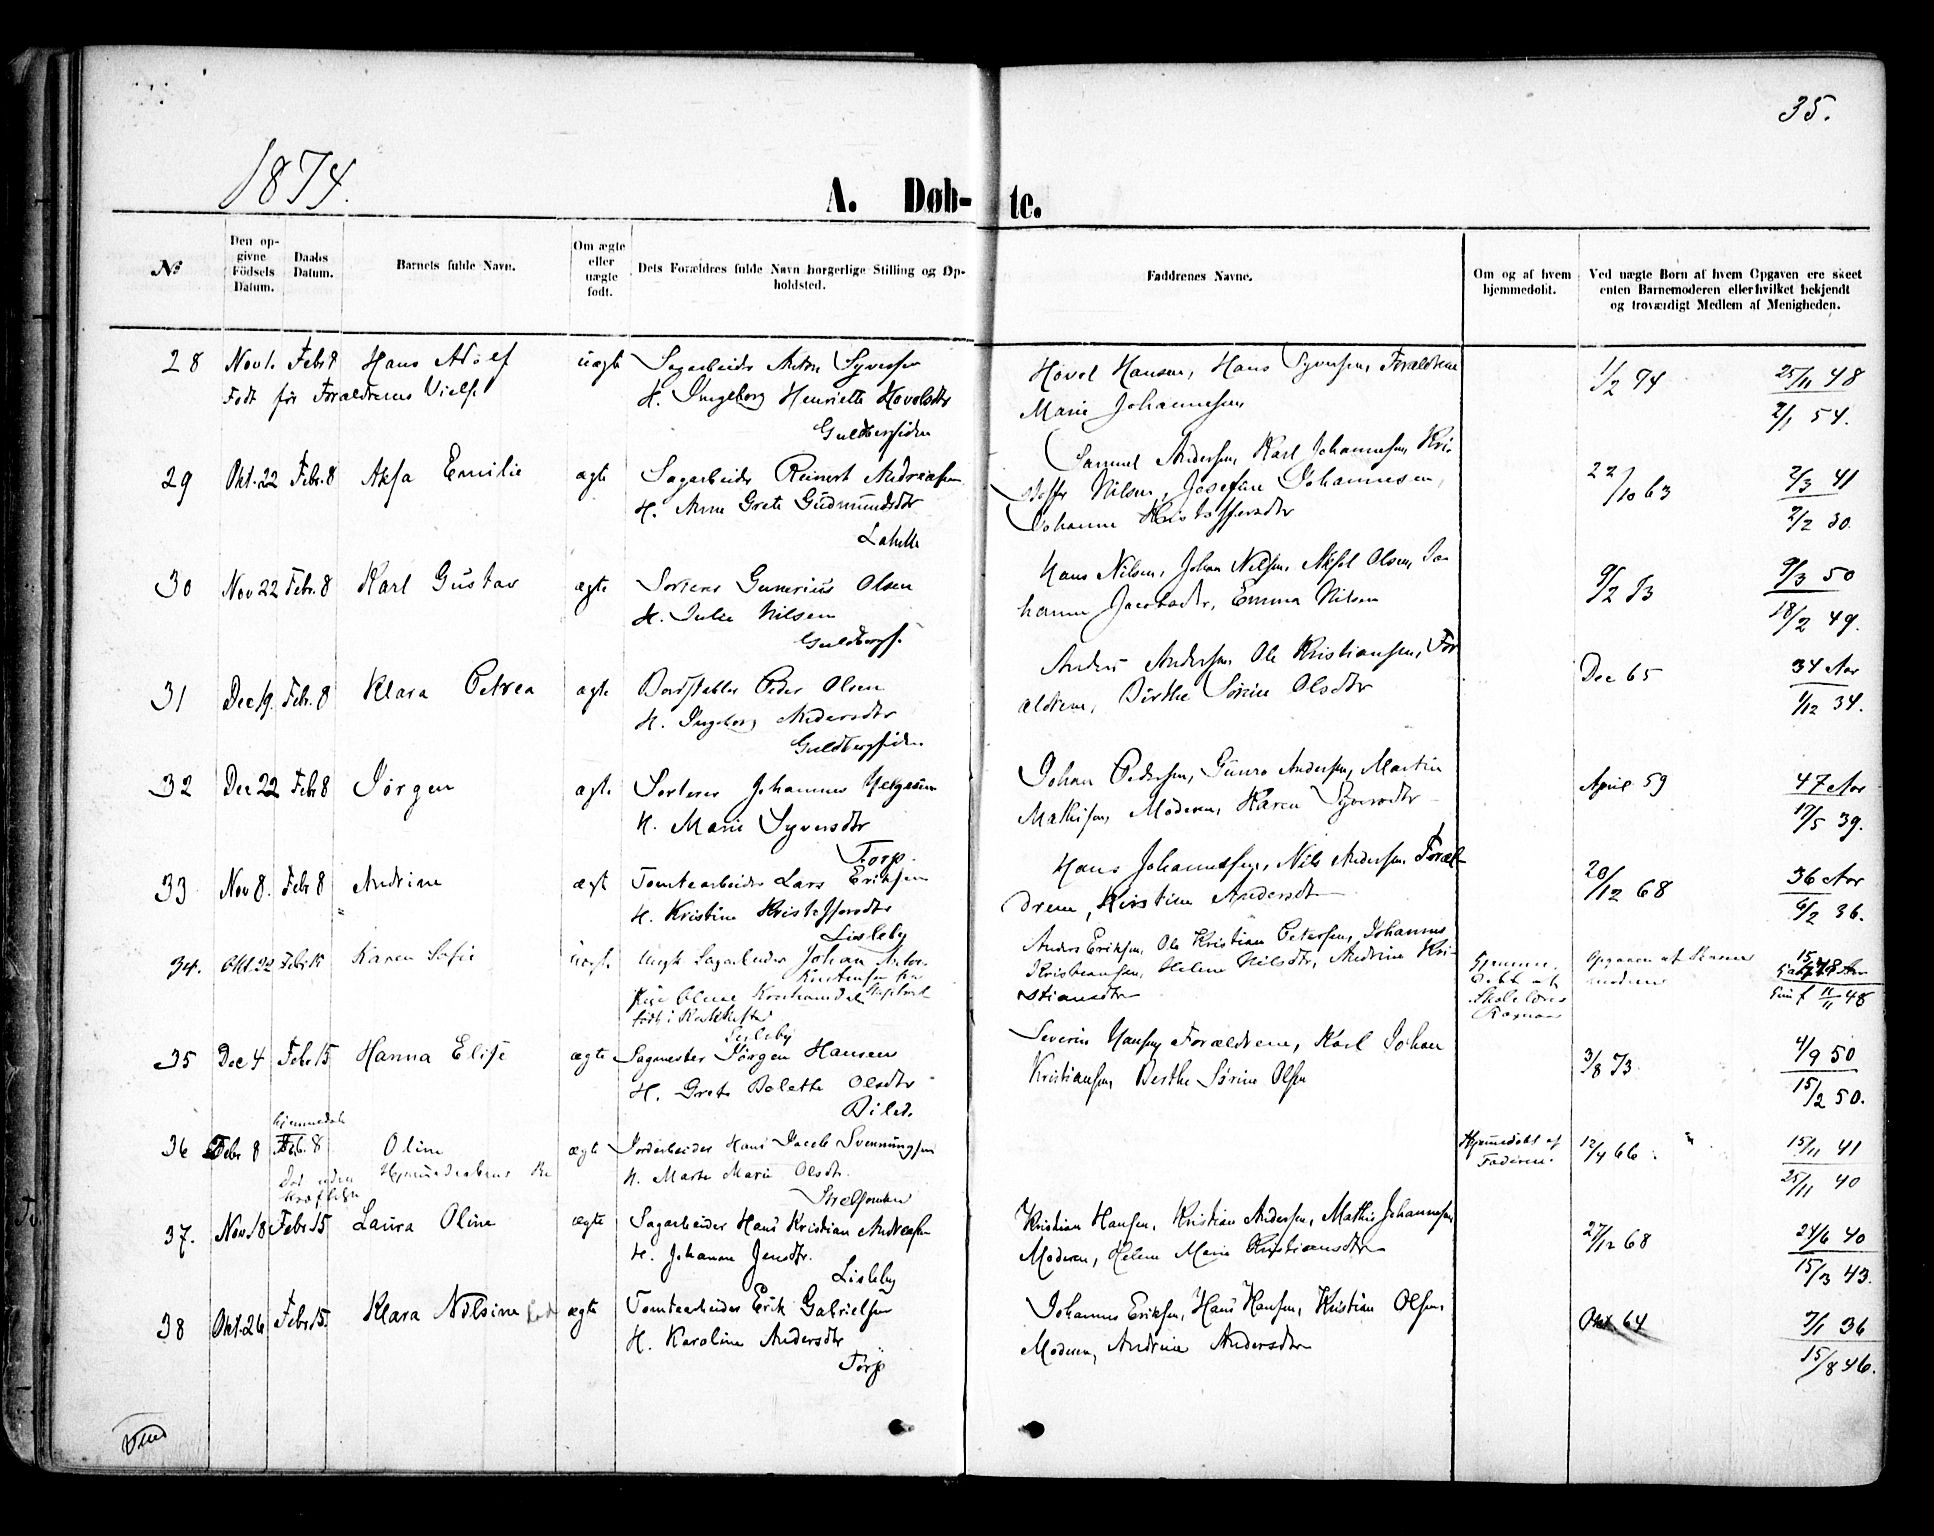 35.
1874.
A. Døb- te.
№
Den op-
givne
Födsels
Datum.
Daabs
Datum.
Barnets fulde Navn.
Om ægte
eller
uægte
født.
Dets Forældres fulde Navn borgerlige Stilling og Op-
holdsted.
Faddrenes Navne.
Om og af hvem
hjemmedøbt.
Ved uægte Born af hvem Opgaven ere skeet
enten Barnemoderen eller hvilket bekjendt
og troværdigt Medlem af Menigheden.
28 Nov 1. Febr 8 Hans Adolf uægte Sagarbeider Anton Syversen
Født før Forældrenes Vielse H. Ingeborg Henriette Hovelsdtr
Guldbergsiden
Hovel Hansen, Hans Syversen, Forældrene
Marie Johannesen
1/2 74 25/11 48
2/1 54.
29 Okt. 22 Febr. 8 Emilie ægte Sagarbeider Reinert Andreasen
H. Anne Grete Gudmundsdtr
Samuel Andersen, Karl Johannesen, Kri-
stoffer Nilsen, Josefine Johannesen,
Johanne Kristoffersdtr
22/10 63 2/3 41
2/2 30.
30 Nov 22 Febr. 8 Karl Gustav ægte Sorterer Gunerius Olsen
H. Julie Nilsen
Guldbergs.
Hans Nilsen, Johan Nilsen, Aksel Olsen, Jo-
hanne Jacobsdtr, Emma Nilsen
9/2 73 9/3 50
18/2 49.
31 Dec 19. Febr. 8 Klara Petrea ægte Bordstabler Peder Olsen
H. Ingeborg Andersdtr
Guldbergsiden
Anders Andersen, Ole Kristiansen, For-
ældrene, Birthe Sørine Olsdtr
Dec 65 34 Aar
1/12 34.
32 Dec 22 Febr 8 Jørgen ægte Sorterer Johannes
H. Marie Syversdtr
Torp.
Johan Pedersen, Gunro Andersen, Martin
Mathisen, Moderen, Karen Syversdtr
April 59 47 Aar
17/5 39.
33 Nov 8. Febr 8 Andrine ægte Tomtearbeider Lars Eriksen
H. Kristine Kristoffersdtr
Lisleby
Hans Johannesen, Nils Andersen, Foræl-
drene, Kirstine Andersdtr
20/12 68 36 Aar
6/2 36.
34. Okt. 22 Febr 15 Karen Sofie uægte Ungk Sagarbeider Johan Anton
Pige Oline
Lisleby
Anders Eriksen, Ole Kristian Petersen, Johannes
Kristiansen, Helene Nilsdtr, Andrine Kri-
stiansdtr
Hjemme-
døbt af
Skolelærer
Opgaven af Barne-
moderen
11/11 48
35 Dec 4 Febr 15 Hanna Elise ægte Sagmester Jørgen Hansen
H. Grete Bolette Olsdtr
Severin Hansen, Forældrene, Karl Johan
Kristiansen, Berthe Sørine Olsen
3/8 73 4/9 50
15/2 50.
36 Febr 8 hjemmedøb Feb. 8 Oline ægte Jordarbeider Hans Jacob Svenningsen
Død uden Hjemmedaabens Be-
kræftelse
H. Marte Marie Olsdtr.
Hjemmedøbt af
Faderen.
12/4 66. 15/11 41
25/11 40
37. Nov 18 Febr 15 Laura Oline ægte Sagarbeider Hans Kristian Andreasen
H. Johanne Jensdtr.
Lisleby
Kristian Hansen, Kristian Andersen, Mathis Johannesen
Moderen, Helene Marie Kristiansdtr
27/12 68 24/6 40
15/3 43.
38 Okt. 26 Febr 15. Klara Nilsine ægte Tomtearbeider Erik Gabrielsen
H. Karoline Andersdtr
Torp
Johannes Eriksen, Hans Hansen, Kristian Olsen,
Moderen, Andrine Andersdtr
Okt 64 7/1 36
15/8 46.
Vend